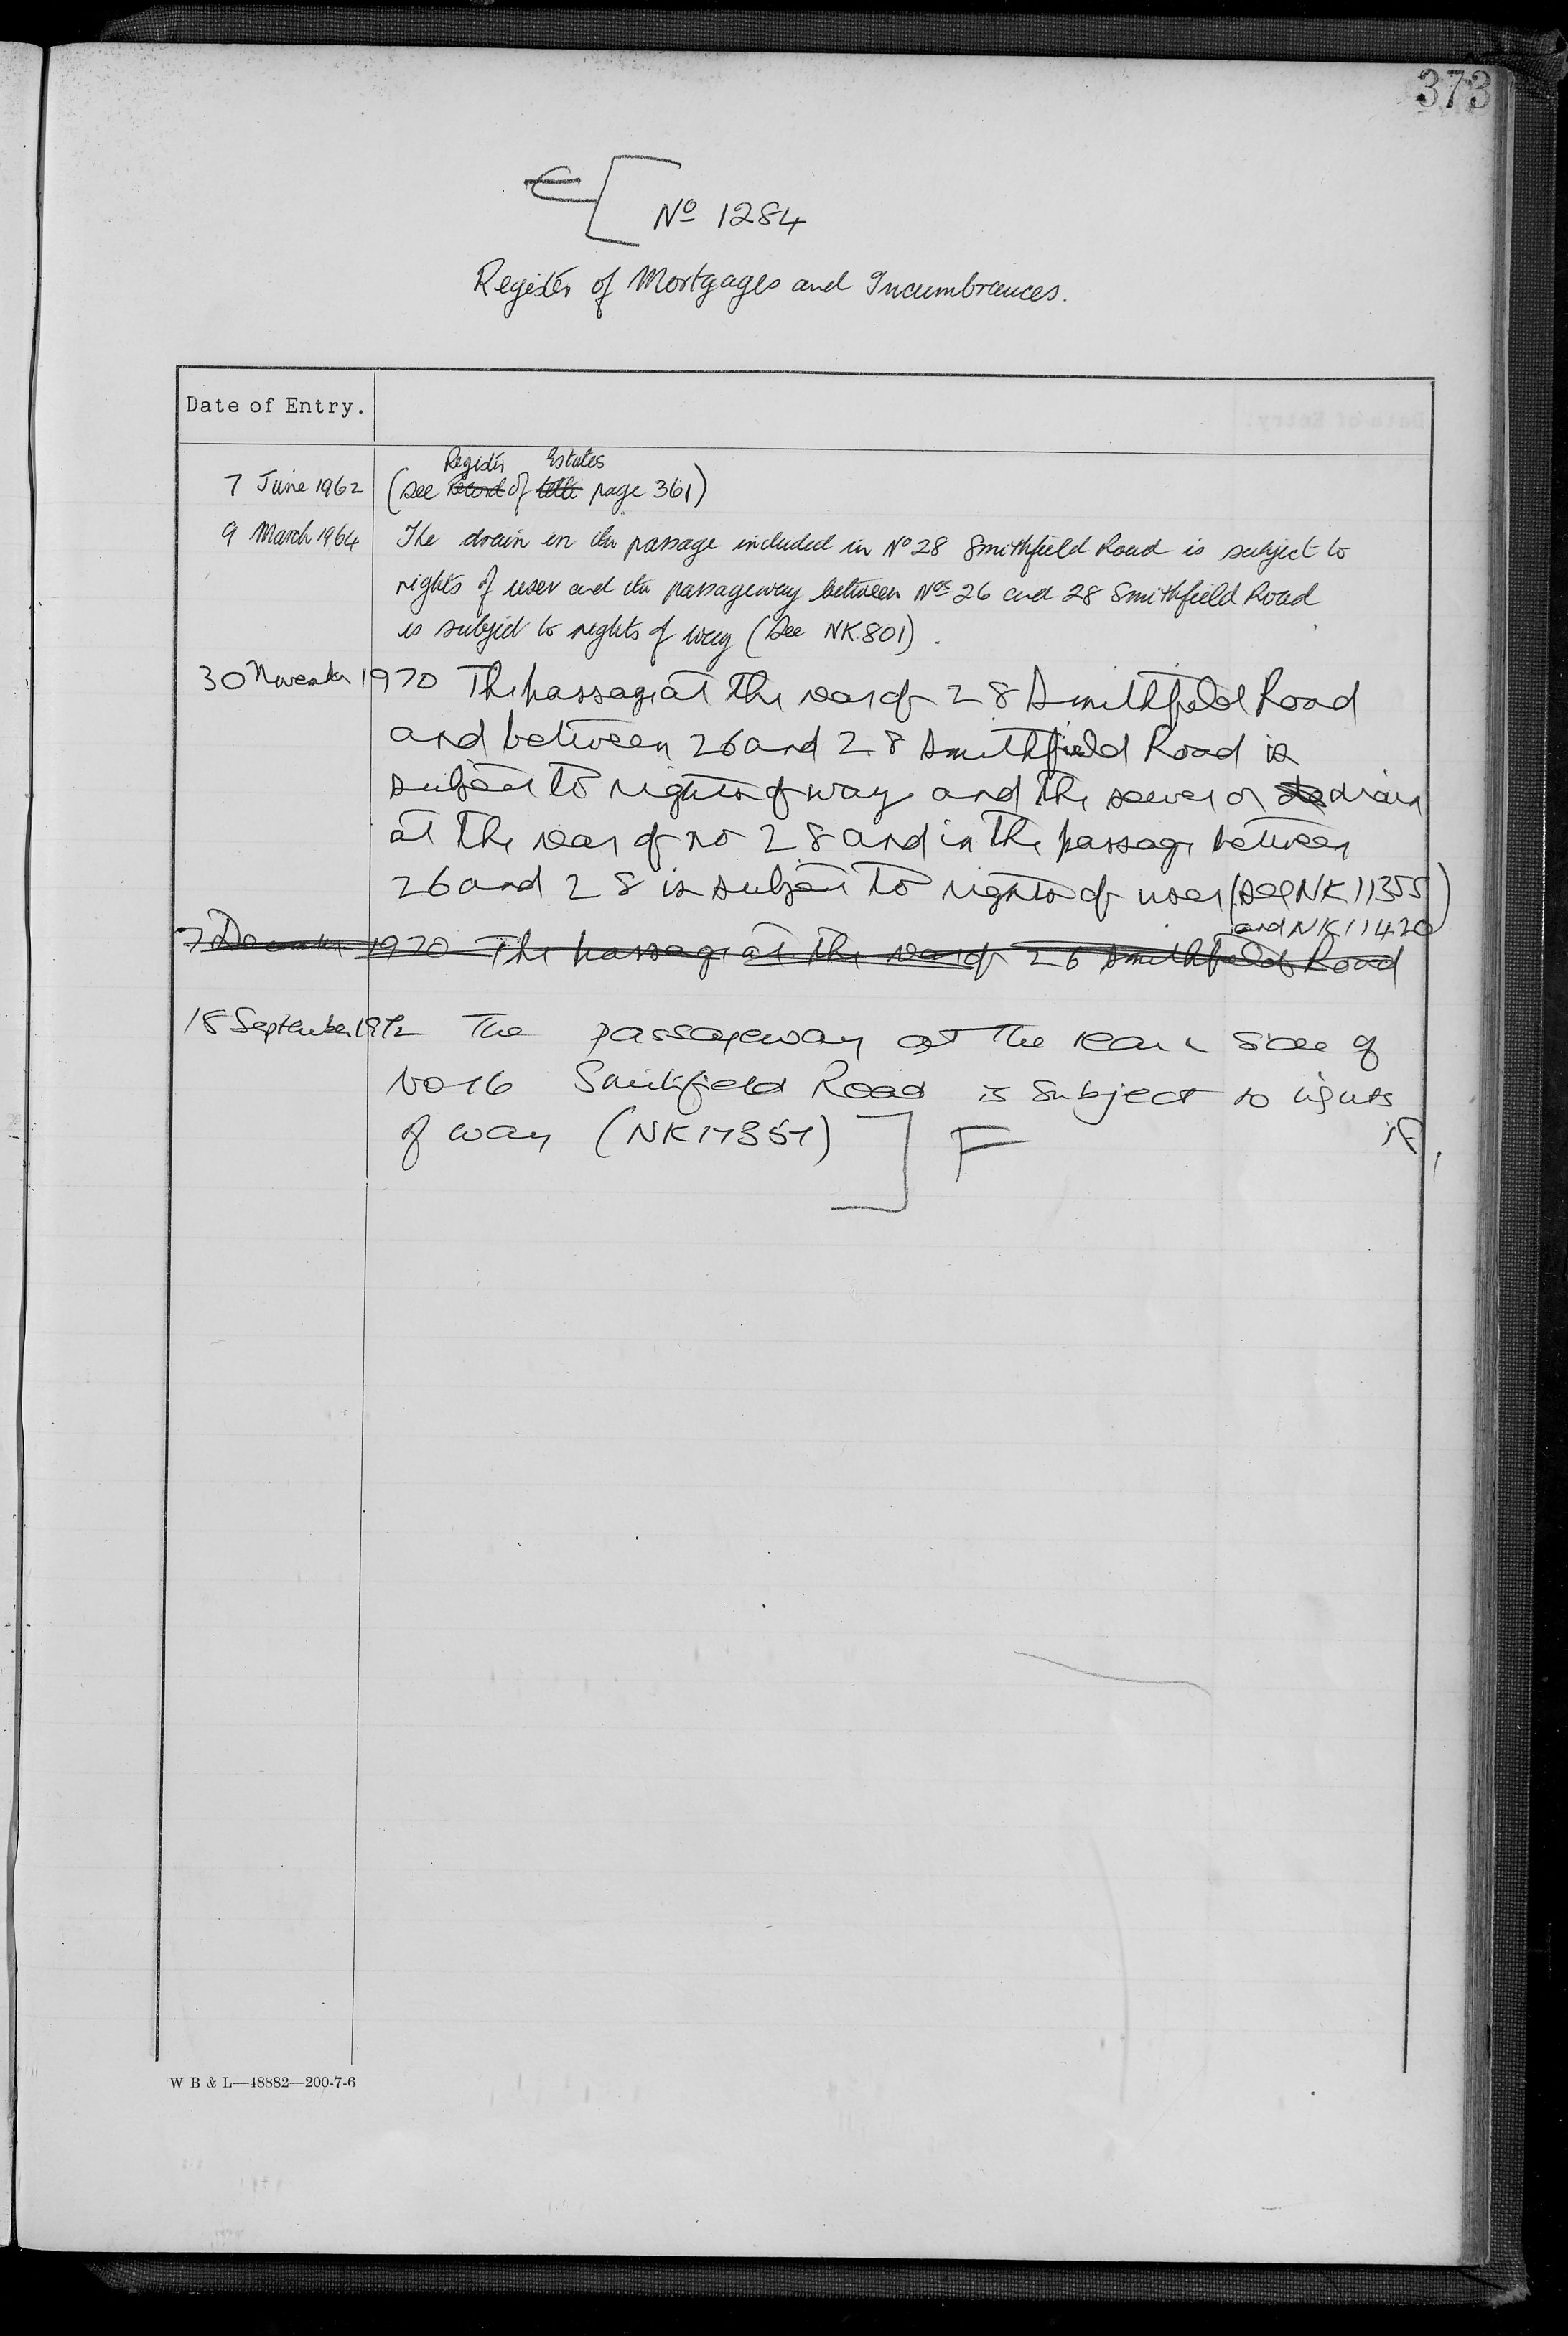 373
E
Nº 1284
Register of Mortgages and Incumbrances.
Date of Entry.
Register Estates
7 June 1962 (see Record of title page 361)
9 March 1964 The drain in the passage included in Nº 28 Smithfield Road is subject to
rights of user and the passageway between Nos 26 and 28 Smithfield Road
is subject to rights of way (see NK.801).
30 November 1970 The passage at the rear of 28 Smithfield Road
and between 26 and 28 Smithfield Road is
subject to rights of way and the sewer or de drain
at the rear of no 28 and in the passage between
26 and 28 is subject to rights of user (see NK 11355
and NK 11420)
7 December 1970 The passage at the rear of 26 Smithfield Road
18 September 1972 The passageway at the rear & side of
No 16 Smithfield Road is subject to rights
of way (NK17357) F
W B & L—48882—200-7-6